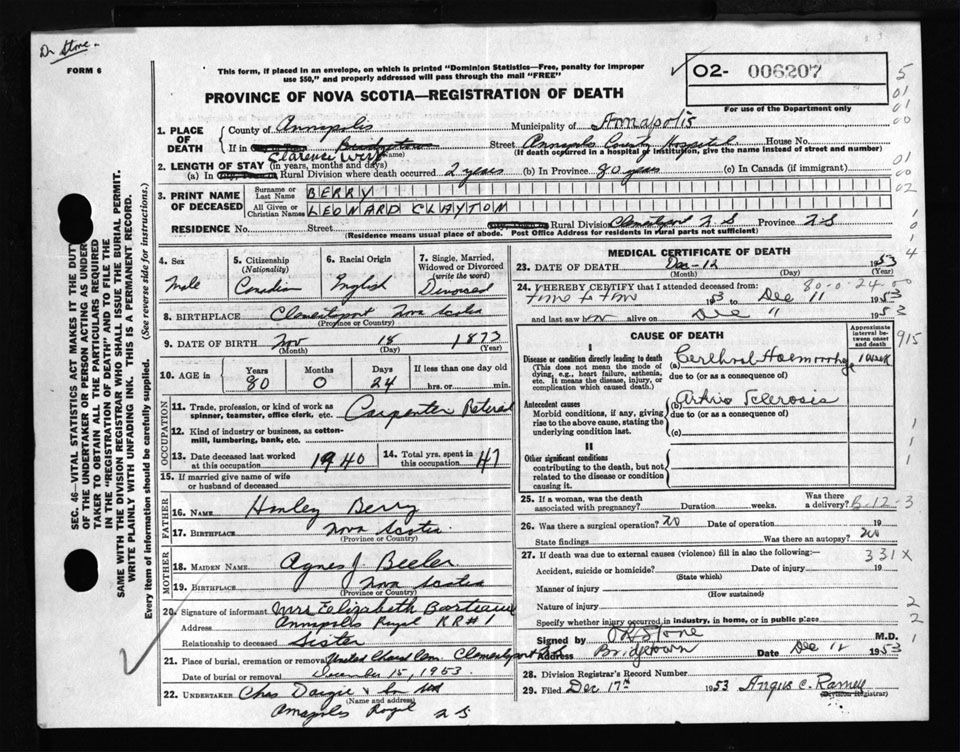 Dr Stone.
FORM 6
This form, if placed in an envelope, on which is printed "Dominion Statistics—Free, penalty for improper use $50," and properly addressed will pass through the mail "FREE"
02- 006207
For use of the Department only
PROVINCE OF NOVA SCOTIA—REGISTRATION OF DEATH
SEC. 46—VITAL STATISTICS ACT MAKES IT THE DUTY OF THE UNDERTAKER OR PERSON ACTING AS UNDERTAKER TO OBTAIN ALL THE PARTICULARS REQUIRED IN THE "REGISTRATION OF DEATH" AND TO FILE THE SAME WITH THE DIVISION REGISTRAR WHO SHALL ISSUE THE BURIAL PERMIT.
WRITE PLAINLY WITH UNFADING INK. THIS IS A PERMANENT RECORD.
Every item of information should be carefully supplied. (See reverse side for instructions.)
1. PLACE OF DEATH County of Annapolis Municipality of Annapolis
If in Bridgetown (Name) Street Annapolis County Hospital House No.
(If death occurred in a hospital or institution, give the name instead of street and number)
Clarence West
2. LENGTH OF STAY (in years, months and days)
(a) In Rural Division where death occurred 2 years (b) In Province 80 years (c) In Canada (if immigrant)
3. PRINT NAME OF DECEASED
Surname or Last Name BERRY
All Given or Christian Names LEONARD CLAYTON
RESIDENCE No. Street Rural Division Clementsport N S Province N S
(Residence means usual place of abode. Post Office Address for residents in rural parts not sufficient)
4. Sex Male
5. Citizenship (Nationality) Canadian
6. Racial Origin English
7. Single, Married, Widowed or Divorced (write the word) Divorced
8. BIRTHPLACE Clementsport Nova Scotia
(Province or Country)
9. DATE OF BIRTH Nov 18 1873
(Month) (Day) (Year)
10. AGE in Years 80 Months 0 Days 24 If less than one day old hrs. or min.
OCCUPATION
11. Trade, profession, or kind of work as spinner, teamster, office clerk, etc. Carpenter Retired
12. Kind of industry or business, as cotton-mill, lumbering, bank, etc.
13. Date deceased last worked at this occupation 1940
14. Total yrs. spent in this occupation 47
15. If married give name of wife or husband of deceased
FATHER
16. NAME Hanley Berry
17. BIRTHPLACE Nova Scotia
(Province or Country)
MOTHER
18. MAIDEN NAME Agnes J. Beeler
19. BIRTHPLACE Nova Scotia
(Province or Country)
20. Signature of informant Mrs Elizabeth Barteaux
Address Annapolis Royal RR#1
Relationship to deceased Sister
21. Place of burial, cremation or removal United Church Cem. Clementsport N S
Date of burial or removal December 15, 1953
22. UNDERTAKER Chas Dargie & Son Ltd
(Name and address)
Annapolis Royal N S
MEDICAL CERTIFICATE OF DEATH
23. DATE OF DEATH Dec-12 1953
(Month) (Day) (Year)
80-0-24
24. I HEREBY CERTIFY that I attended deceased from:
time to time 1953 to Dec 11 1953
and last saw him alive on Dec 11 1953
CAUSE OF DEATH
Approximate interval between onset and death
I
Disease or condition directly leading to death (This does not mean the mode of dying, e.g., heart failure, asthenia, etc. It means the disease, injury, or complication which caused death.)
(a) Cerebral Haemorrhage 1 week
due to (or as a consequence of)
Antecedent causes
Morbid conditions, if any, giving rise to the above cause, stating the underlying condition last.
(b) Arterio Sclerosis
due to (or as a consequence of)
(c)
II
Other significant conditions contributing to the death, but not related to the disease or condition causing it.
25. If a woman, was the death associated with pregnancy? Duration weeks. Was there a delivery? B-12-3
26. Was there surgical operation? no Date of operation 19
State findings Was there an autopsy? no
27. If death was due to external causes (violence) fill in also the following:— 331X
Accident, suicide or homicide? Date of injury 19
(State which)
Manner of injury
(How sustained)
Nature of injury
Specify whether injury occurred in industry, in home, or in public place
Signed by Stone M.D.
Address Bridgetown Date Dec 12 1953
28. Division Registrar's Record Number
29. Filed Dec 17th 1953 Angus C. Ramey
(Division Registrar)
5
01
01
00
01
00
02
1
0
1
4
915
1
1
1
2
2
1